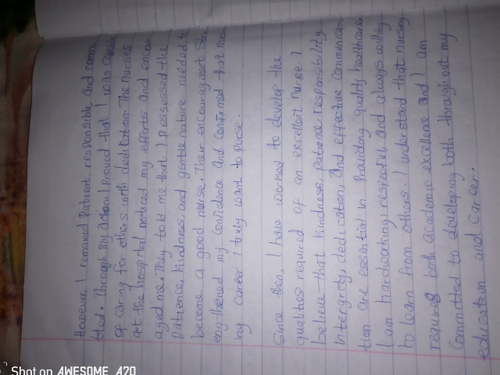 However, I remained Patient, responsible and comm
itted. Through my actions I proved that I was capable
of caring for others with dedication. The Nurses
at the hospital noticed my efforts and encour
aged me. They told me that I possessed the
patience, kindness, and gentle nature needed to
become a good nurse. Their encouragement str
engthened my confidence and confirmed that nurs
ing career I truly want to Pursue.
Since then, I have worked to develop the
qualities required of an excellent Nurse. I
believe that kindness, patience, responsibility
Intergrity, dedication, and effective Communica-
tion are essential in Providing quality healthcare.
I am hardworking, respectful and always willing
to learn from others. I understand that nursing
requires both academic excellence and I am
Committed to developing both through out my
education and Career.
Shot on AWESOME A70